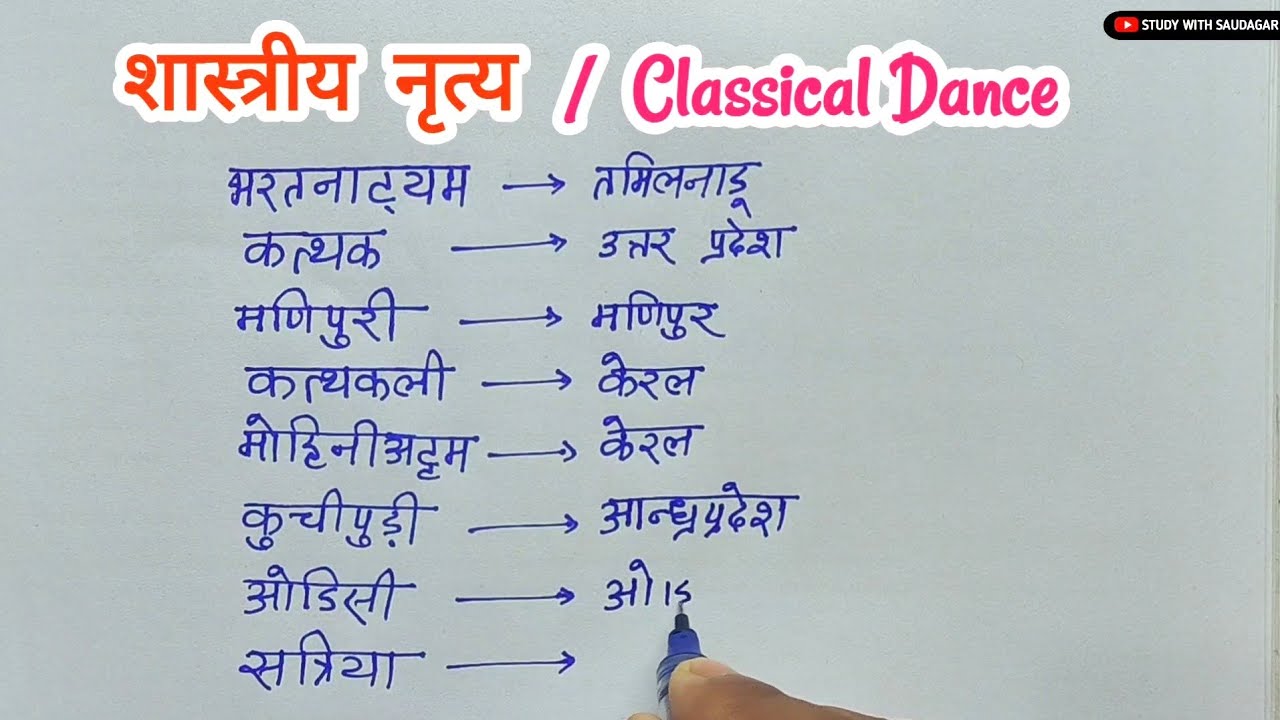 STUDY WITH SAUDAGAR
शास्त्रीय नृत्य / Classical Dance
भरतनाट्यम → तमिलनाडू
कत्थक → उत्तर प्रदेश
मणिपुरी → मणिपुर
कत्थकली → केरल
मोहिनीअट्टम → केरल
कुचीपुड़ी → आन्ध्रप्रदेश
ओडिसी → ओड
सत्रिया →